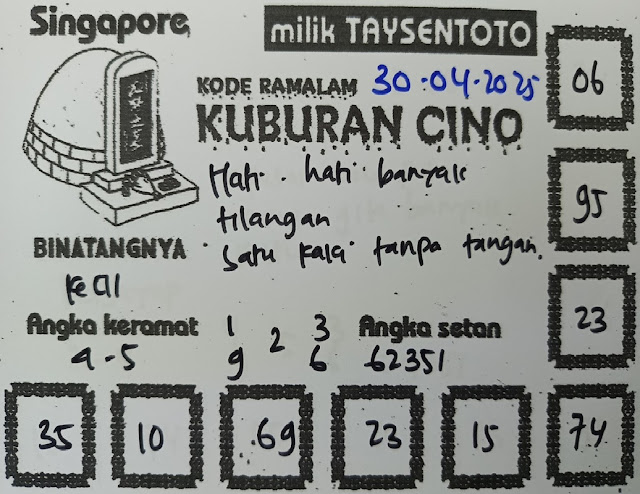 Singapore,
milik TAYSENTOTO
KODE RAMALAM 30-04-2025
KUBURAN CINO
Hati - hati banyak
tilangan
satu kaki tanpa tangan.
BINATANGNYA
kecil
Angka keramat
9-5
1 3
2
9 6
Angka setan
62351
06
95
23
35 10 69 23 15 74